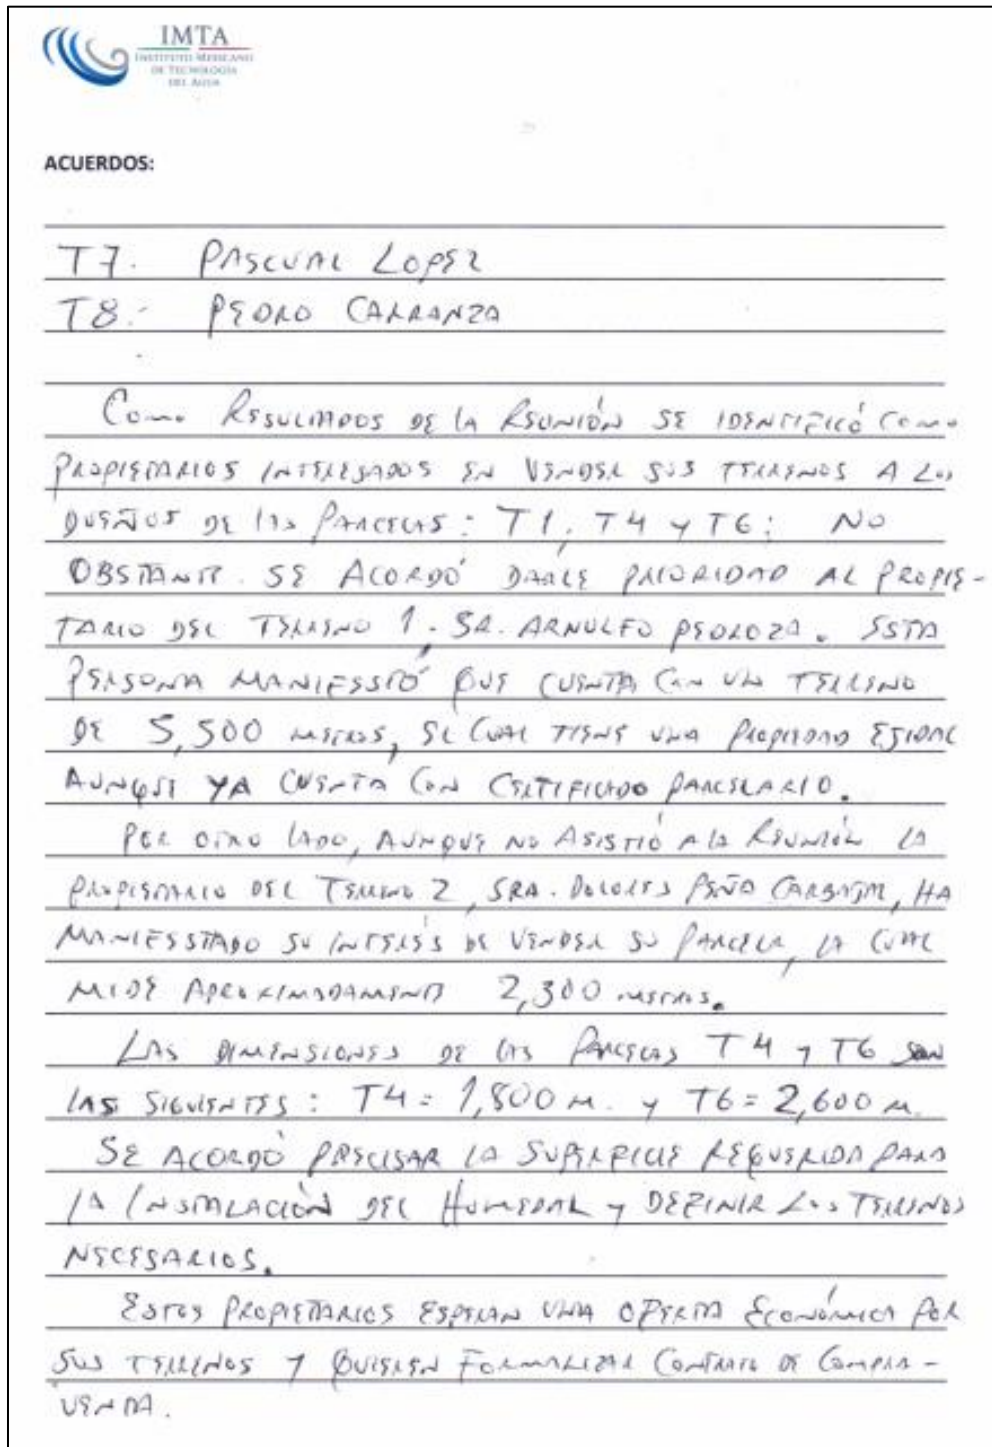 IMTA
INSTITUTO MEXICANO
DE TECNOLOGÍA
DEL AGUA
ACUERDOS:
T7. PASCUAL LOPEZ
T8.- PEDRO CARRANZA
COMO RESULTADOS DE LA REUNIÓN SE IDENTIFICÓ COMO
PROPIETARIOS INTERESADOS EN VENDER SUS TERRENOS A LOS
DUEÑOS DE LAS PARCELAS: T1, T4 Y T6; NO
OBSTANTE. SE ACORDÓ DARLE PRIORIDAD AL PROPIE-
TARIO DEL TERRENO 1. SR. ARNULFO PEDROZA. ESTA
PERSONA MANIESSTÓ QUE CUENTA CON UN TERRENO
DE 5,500 METROS, EL CUAL TIENE UNA PROPIEDAD EJIDAL
AUNQUE YA CUENTA CON CERTIFICADO PARCELARIO.
POR OTRO LADO, AUNQUE NO ASISTIÓ A LA REUNIÓN LA
PROPIETARIO DEL TERRENO 2, SRA. DOLORES PEÑA CARBAJAL, HA
MANIESSTADO SU INTERÉS DE VENDER SU PARCELA, LA CUAL
MIDE APROXIMADAMENTE 2,300 METROS.
LAS DIMENSIONES DE LAS PARCELAS T4 Y T6 SON
LAS SIGUIENTES: T4 = 1,800 M. Y T6 = 2,600 M.
SE ACORDÓ PRECISAR LA SUPERFICIE REQUERIDA PARA
LA INSTALACIÓN DEL HUMEDAL Y DEFINIR LOS TERRENOS
NECESARIOS.
ESTOS PROPIETARIOS ESPERAN UNA OFERTA ECONÓMICA POR
SUS TERRENOS Y QUIEREN FORMALIZAR CONTRATO DE COMPRA-
VENTA.